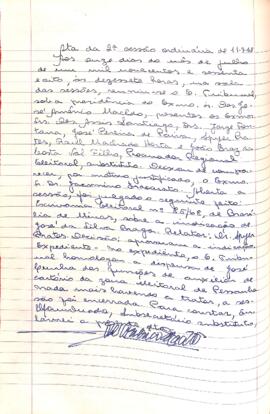 Ata da 2ª sessão ordinária de 11-7-68
Aos onze dias do mês de julho
de um mil novecentos e sessenta
e oito, às dezessete horas, na sala
das sessões, reuniu-se o E. Tribunal,
sob a presidência do Exmo. Sr. Des. José
Américo Macêdo, presentes os Exmos.
Srs. Des. Assis Santiago, Drs. Jorge Fon-
tana, José Pereira de Paiva,
Raul Machado Horta e João Braz
Filho, Procurador Regional
Eleitoral, substituto. Deixou de compa-
recer, por motivo justificado, o Exmo.
Sr. Dr. Jacomino Inacarato. Aberta a
sessão, foi julgado o seguinte feito:
Eleitoral nº 85/68, de Brasí-
lia de Minas, sobre a
José da Silva Braga. Relator: Dr.
Decisão: aprovaram a
Expediente - No expediente, o E. Tribu-
nal homologou a dispensa de José
Cunha das funções de auxiliar de
cartório da zona eleitoral de
nada mais havendo a tratar, a ses-
são foi encerrada. Para constar, eu
Subsecretário substituto,
lavrei a presente ata.